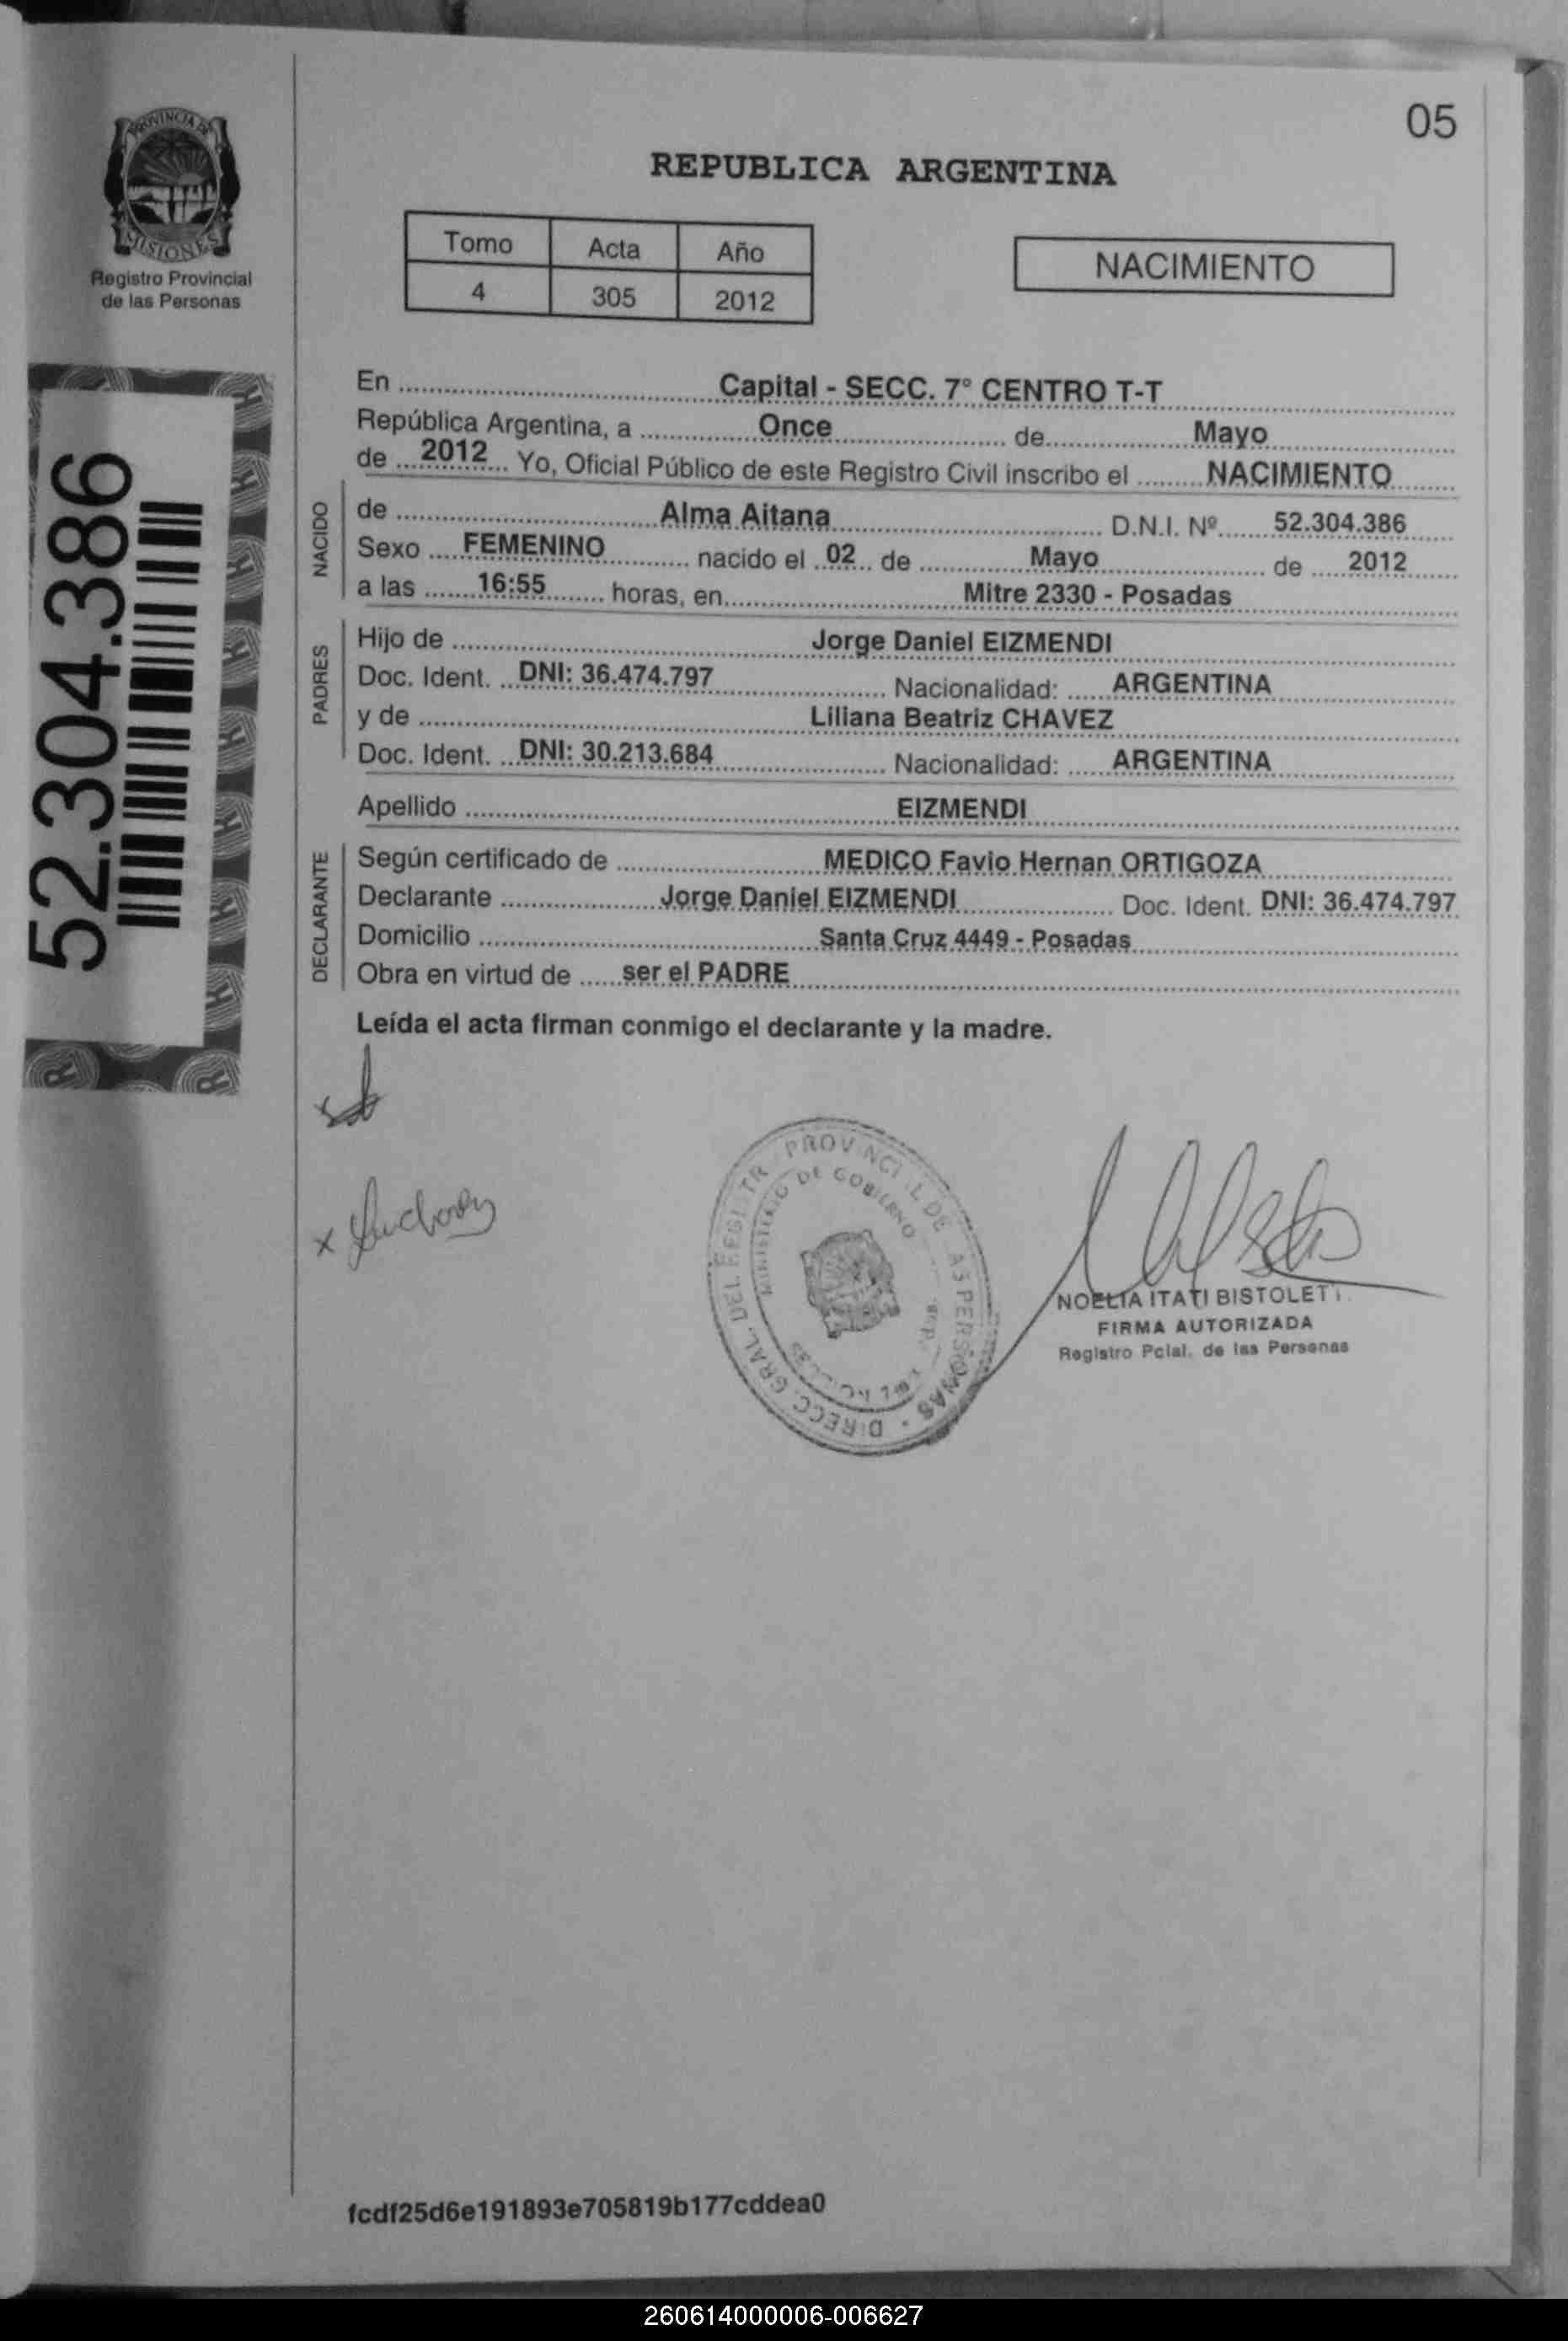 05
PROVINCIA DE
MISIONES
Registro Provincial
de las Personas
REPUBLICA ARGENTINA
Tomo Acta Año
4 305 2012
NACIMIENTO
52.304.386
En Capital - SECC. 7° CENTRO T-T
República Argentina, a Once de Mayo
de 2012 Yo, Oficial Público de este Registro Civil inscribo el NACIMIENTO
NACIDO
de Alma Aitana D.N.I. Nº 52.304.386
Sexo FEMENINO nacido el 02 de Mayo de 2012
a las 16:55 horas, en Mitre 2330 - Posadas
PADRES
Hijo de Jorge Daniel EIZMENDI
Doc. Ident. DNI: 36.474.797 Nacionalidad: ARGENTINA
y de Liliana Beatriz CHAVEZ
Doc. Ident. DNI: 30.213.684 Nacionalidad: ARGENTINA
Apellido EIZMENDI
DECLARANTE
Según certificado de MEDICO Favio Hernan ORTIGOZA
Declarante Jorge Daniel EIZMENDI Doc. Ident. DNI: 36.474.797
Domicilio Santa Cruz 4449 - Posadas
Obra en virtud de ser el PADRE
Leída el acta firman conmigo el declarante y la madre.
MINISTERIO DE GOBIERNO
NOELIA ITATI BISTOLETTI
FIRMA AUTORIZADA
Registro Pcial. de las Personas
fcdf25d6e191893e705819b177cddea0
260614000006-006627